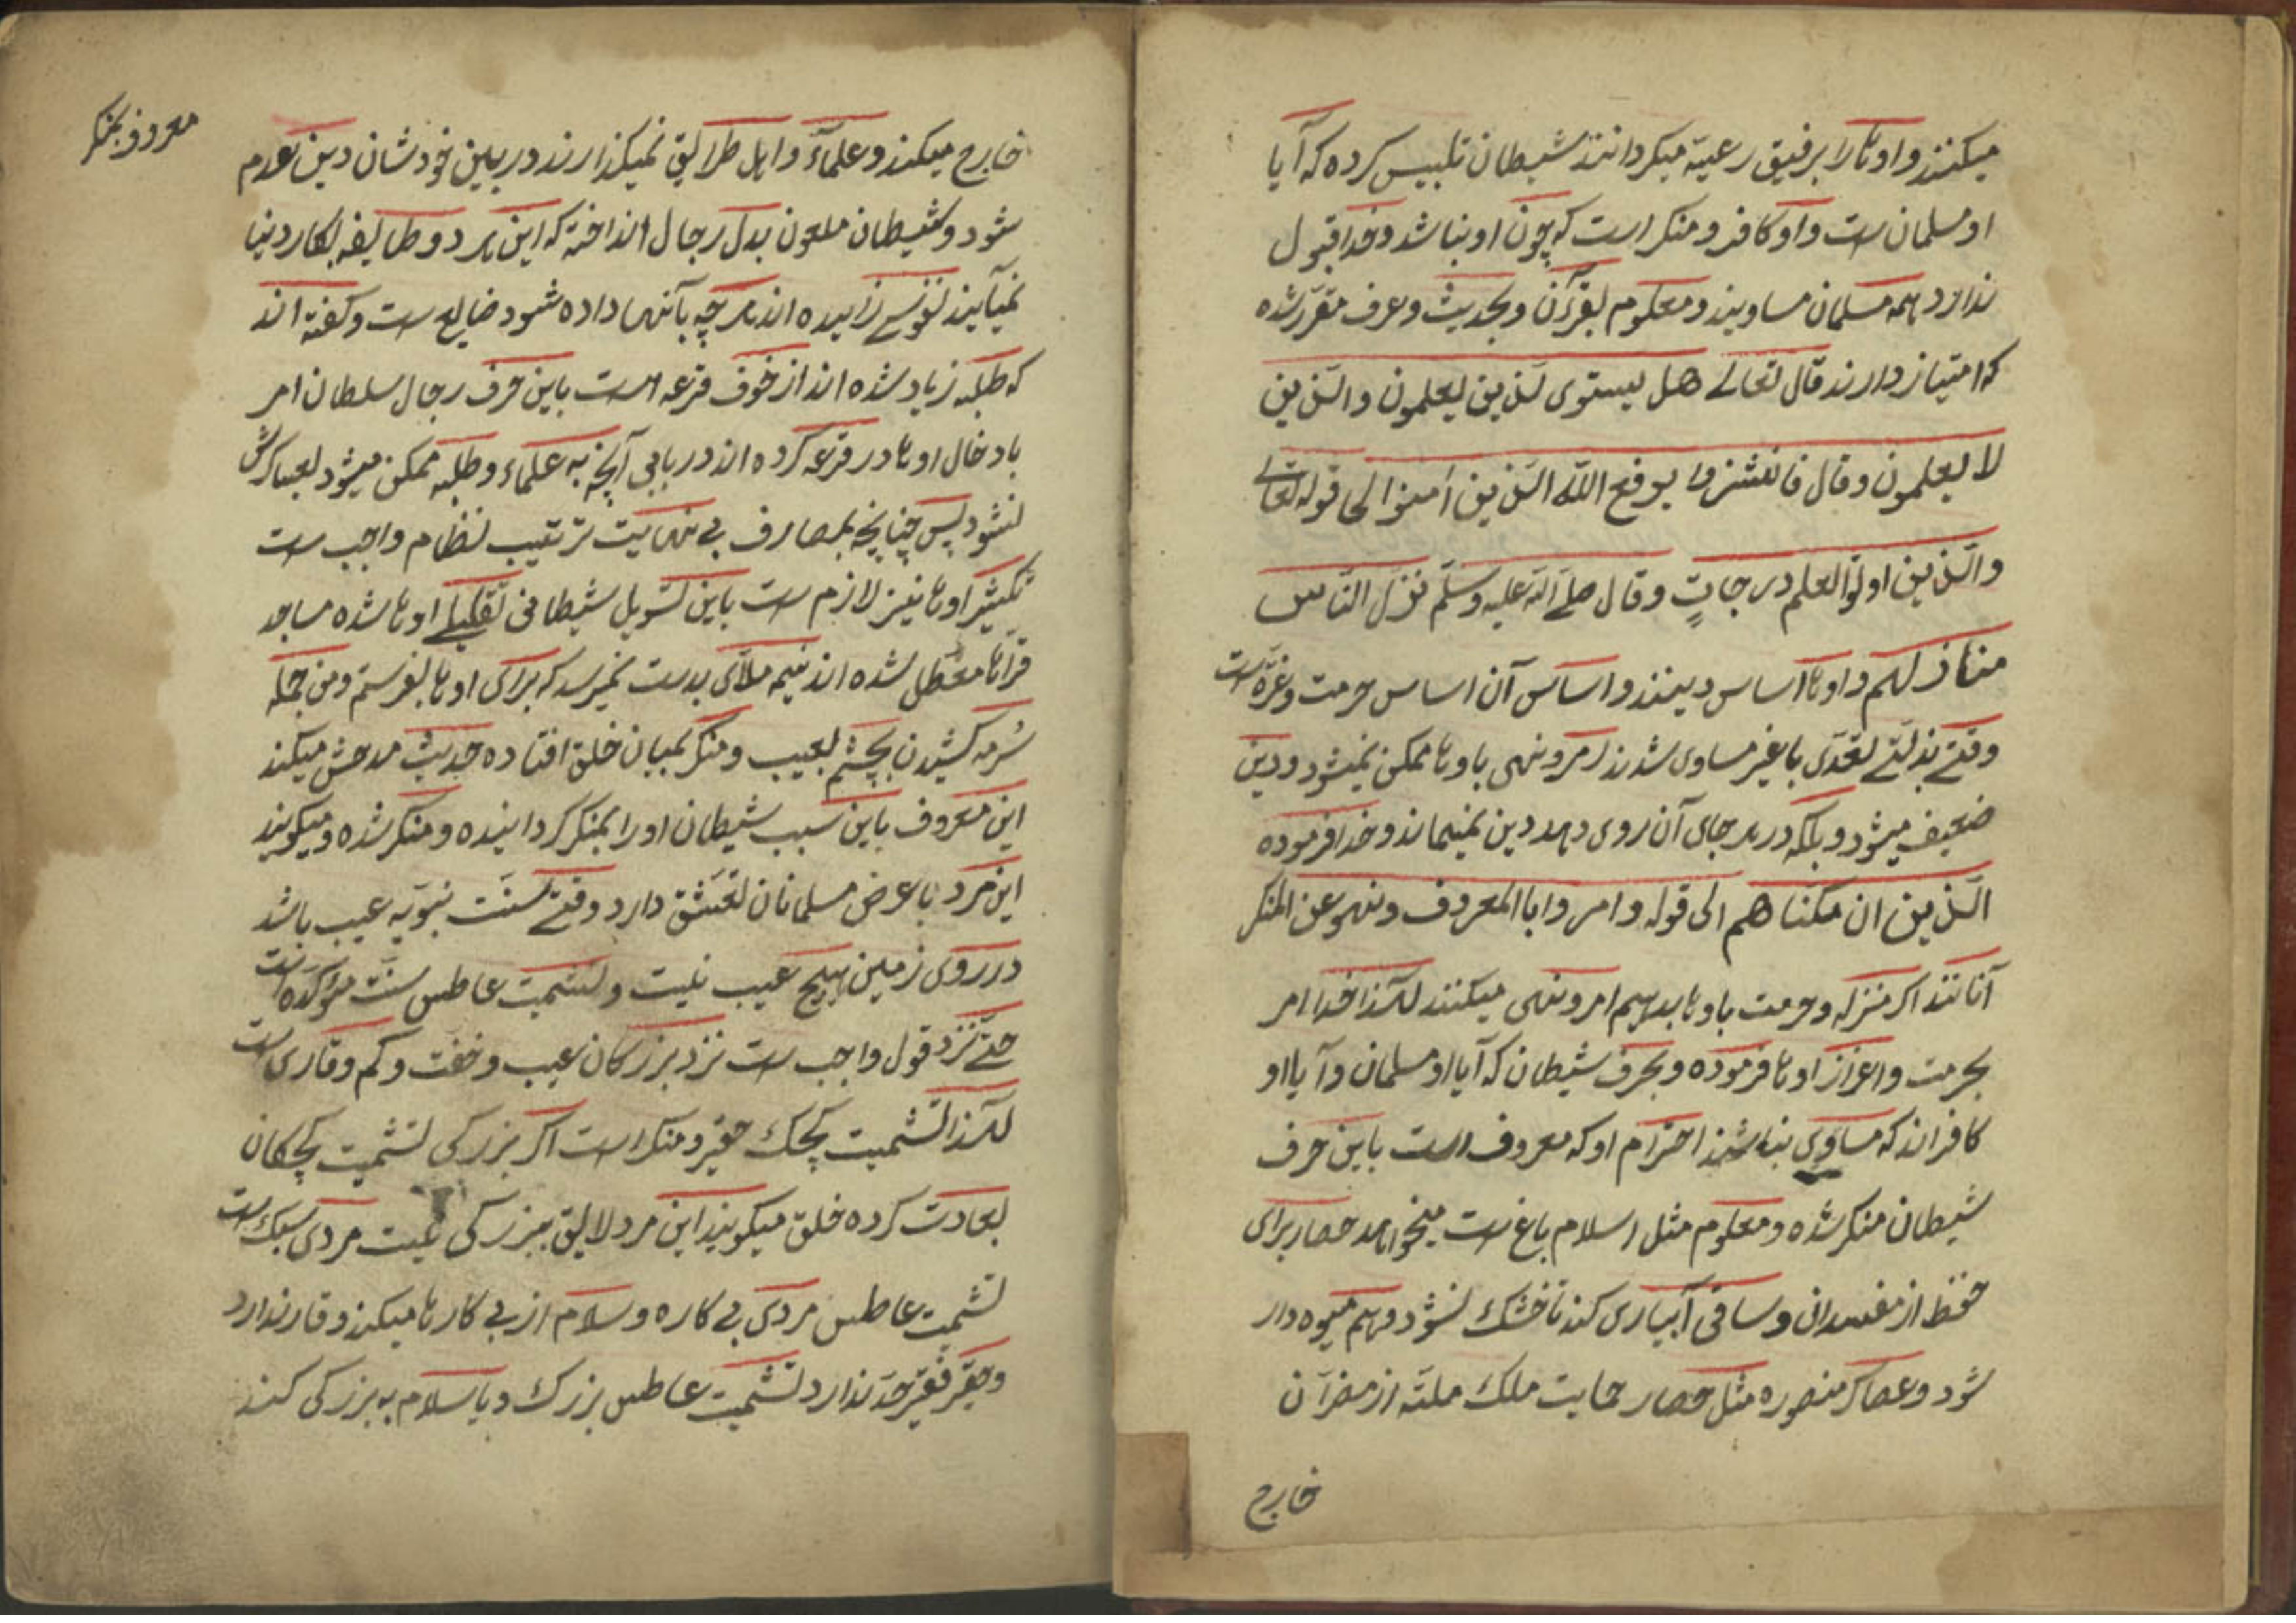 میکنند و اوها را برفیق رعیة میکردانند شیطان تلبیس کرده که آیا
او مسلمان ست و او کافر و منکر است که چون او نباشد و خدا قبول
ندارد همه مسلمان مساویند و معلوم بقرآن و بحدیث و عرف مقرر شده
که امتیاز دارند قال تعالے هل یستوی لذین یعلمون والذین
لا یعلمون وقال فانشزوا یرفع الله الذین اٰمنوا الی قوله تعالے
والذین اوتوا العلم درجاتٍ وقال صلے الله علیه وسلم نزل الناس
منازلهم و اوها اساس دینند و اساس آن اساس حرمت و عزه ست
وقتے بذلتے تعدی با غیر مساوی شدند امر و نهی باوها ممکن نمیشود و دین
ضعیف میشود و بلکه در هر جای آن روی دهد دین نمیماند و خدا فرموده
الذین ان مکناهم الی قوله وامروا بالمعروف ونهو عن المنکر
آنانند اکر منزله و حرمت باوها بدهم امر و نهی میکنند لهذا خدا امر
بحرمت و اعزاز اوها فرموده و بحرف شیطان که آیا او مسلمان و آیا او
کافراند که مساوی نباشند احترام او که معروف است باین حرف
شیطان منکر شده و معلوم مثل اسلام باغ ست میخواهد حصار برای
حفظ از مفسدان و ساقی آبیاری کند تا خشک نشود و هم میوه دار
شود و عصاکر منصوره مثل حصار حمایت ملک ملته از مضرآن
خارج
معروف بمنکر
خارج میکند و علمآء و اهل طرایق نمیکذارند در بین خودشان دین عدم
شود و شیطان ملعون بدل رجال انداخته که این هر دو طایفه بکار دنیا
نمیآیند نفوسے زاییده اند هر چه بآنها داده شود ضایع ست و کفته اند
که طلبه زیاد شده اند از خوف قرعه است باین حرف رجال سلطان امر
بادخال اوها در قرعه کرده اند در باقی آنچه به علماء و طلبه ممکن میشود لعساکرش
نشود پس چنانچه بمصارف بی نهایت ترتیب نظام واجب ست
تکثیر اوها نیز لازم ست باین تسویل شیطانی تقلیلے اوها شده مساجد
قراها معطل شده اند نیمه ملاّی بدست نمیرسد که برای اوها بفرستم و من جمله
سُرمه کشیدن بچشم بعیب و منکر بمیان خلق افتاده حدیث مدحش میکند
این معروف باین سبب شیطان او را بمنکر کردانیده و منکر شده و میکویند
این مرد با عرض مسلمانان تعشق دارد وقتے سنت نبویه عیب باشد
در روی زمین هیچ عیب نیت و تشمیت عاطس سنت مؤکده است
حتے نزد قول واجب ست نزد بزرکان عیب و خفت و کم وقاری ست
لهذا تشمیت بچک حقیر و منکر است اکر بزرکی تشمیت بچکان
بعادت کرده خلق میکویند این مرد لایق ببزرکی نیت مردی سبک ست
تشمیت عاطس مردی بی کاره و سلام از بی کارها میکند وقار ندارد
و حقیر فقیر حد ندارد تشمیت عاطس بزرک و یا سلام به بزرکی کند